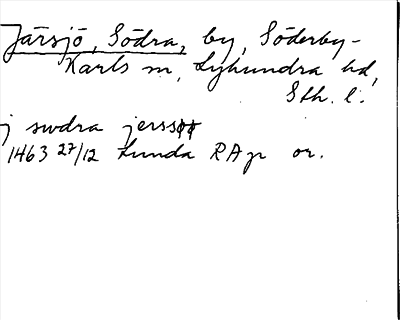 Järsjö, Södra, by, Söderby-
Karls sn, Lyhundra hd,
Sth. l.
j swdra jerssøø
1463 27/12 Lunda RAp or.